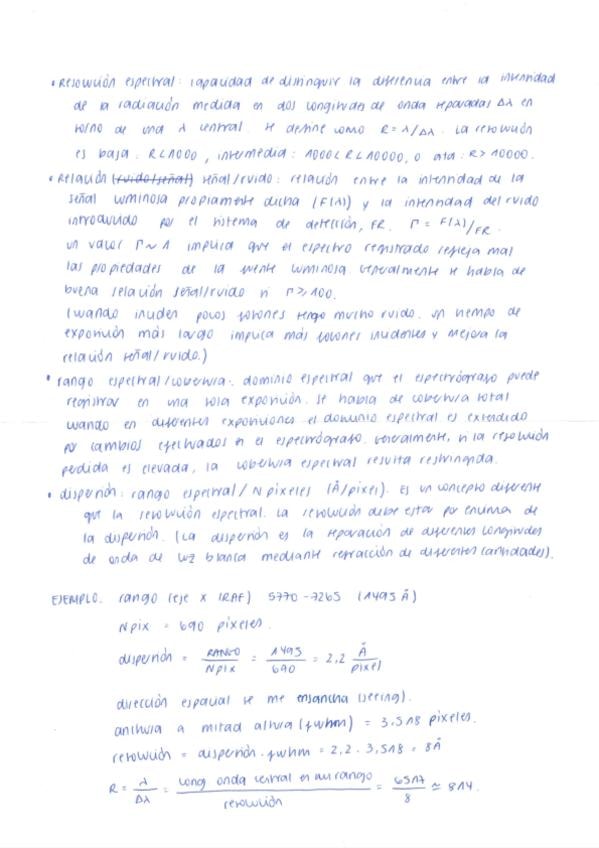 • Resolución espectral: capacidad de distinguir la diferencia entre la intensidad
de la radiación medida en dos longitudes de onda separadas Δλ en
torno de una λ central. Se define como R=λ/Δλ. La resolución
es baja: R<1000, intermedia: 1000<R<10000, o alta: R>10000.
• Relación (ruido/señal) señal/ruido: relación entre la intensidad de la
señal luminosa propiamente dicha (F(λ)) y la intensidad del ruido
introducido por el sistema de detección, FR. Γ = F(λ)/FR.
Un valor Γ~1 implica que el espectro registrado refleja mal
las propiedades de la fuente luminosa. Generalmente se habla de
buena relación señal/ruido si Γ≥100.
(Cuando inciden pocos fotones tengo mucho ruido. Un tiempo de
exposición más largo implica más fotones incidentes y mejora la
relación señal/ruido.)
• rango espectral/cobertura: dominio espectral que el espectrógrafo puede
registrar en una sola exposición. Se habla de cobertura total
cuando en diferentes exposiciones el dominio espectral es extendido
por cambios efectuados en el espectrógrafo. Generalmente, si la resolución
pedida es elevada, la cobertura espectral resulta restringida.
• dispersión: rango espectral / N pixeles (Å/pixel). Es un concepto diferente
que la resolución espectral. La resolución debe estar por encima de
la dispersión. (La dispersión es la separación de diferentes longitudes
de onda de luz blanca mediante refracción de diferentes cantidades).
EJEMPLO. rango (eje x IRAF) 5770-7265 (1495 Å)
Npix = 690 pixeles.
dispersión = RANGO/Npix = 1495/690 = 2,2 Å/pixel
dirección espacial se me ensancha (seeing).
anchura a mitad altura (fwhm) = 3,518 pixeles.
resolución = dispersión · fwhm = 2,2 · 3,518 = 8Å
R = λ/Δλ = long onda central en mi rango/resolución = 6517/8 ≃ 814.